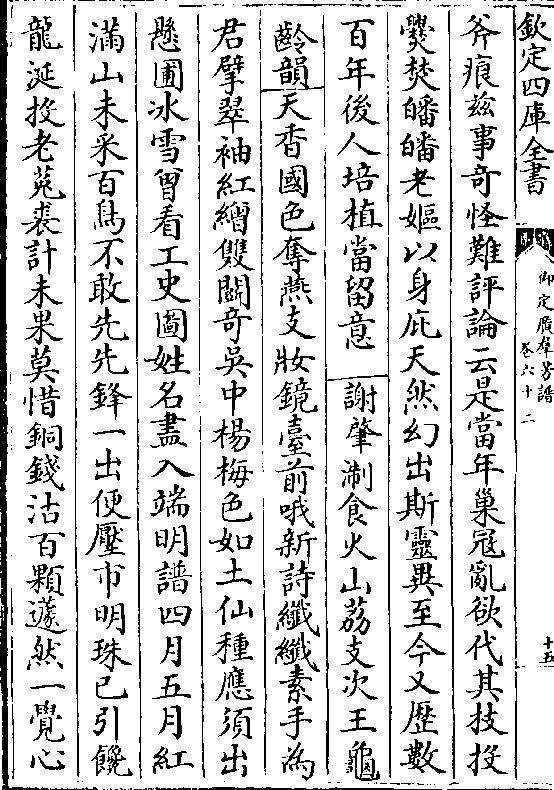 欽定四庫全書
御定廣羣芳譜
卷六十二
十五
斧痕兹事奇怪難評論云是當年巢冦亂欲代其技投
爨焚皤皤老嫗以身庇天然幻出斯靈異至今又歷數
百年後人培植當留意 謝肇淛食火山荔支次王龜
齡韻天香國色奪燕支妝鏡臺前哦新詩纖纖素手為
君擘翠袖紅繒雙鬬奇吳中楊梅色如土仙種應須出
懸圃冰雪曾看工史圖姓名盡入端明譜四月五月紅
滿山未采百鳥不敢先先鋒一出便壓市明珠已引饞
龍涎投老菟裘計未果莫惜銅錢沽百顆蘧然一覺心